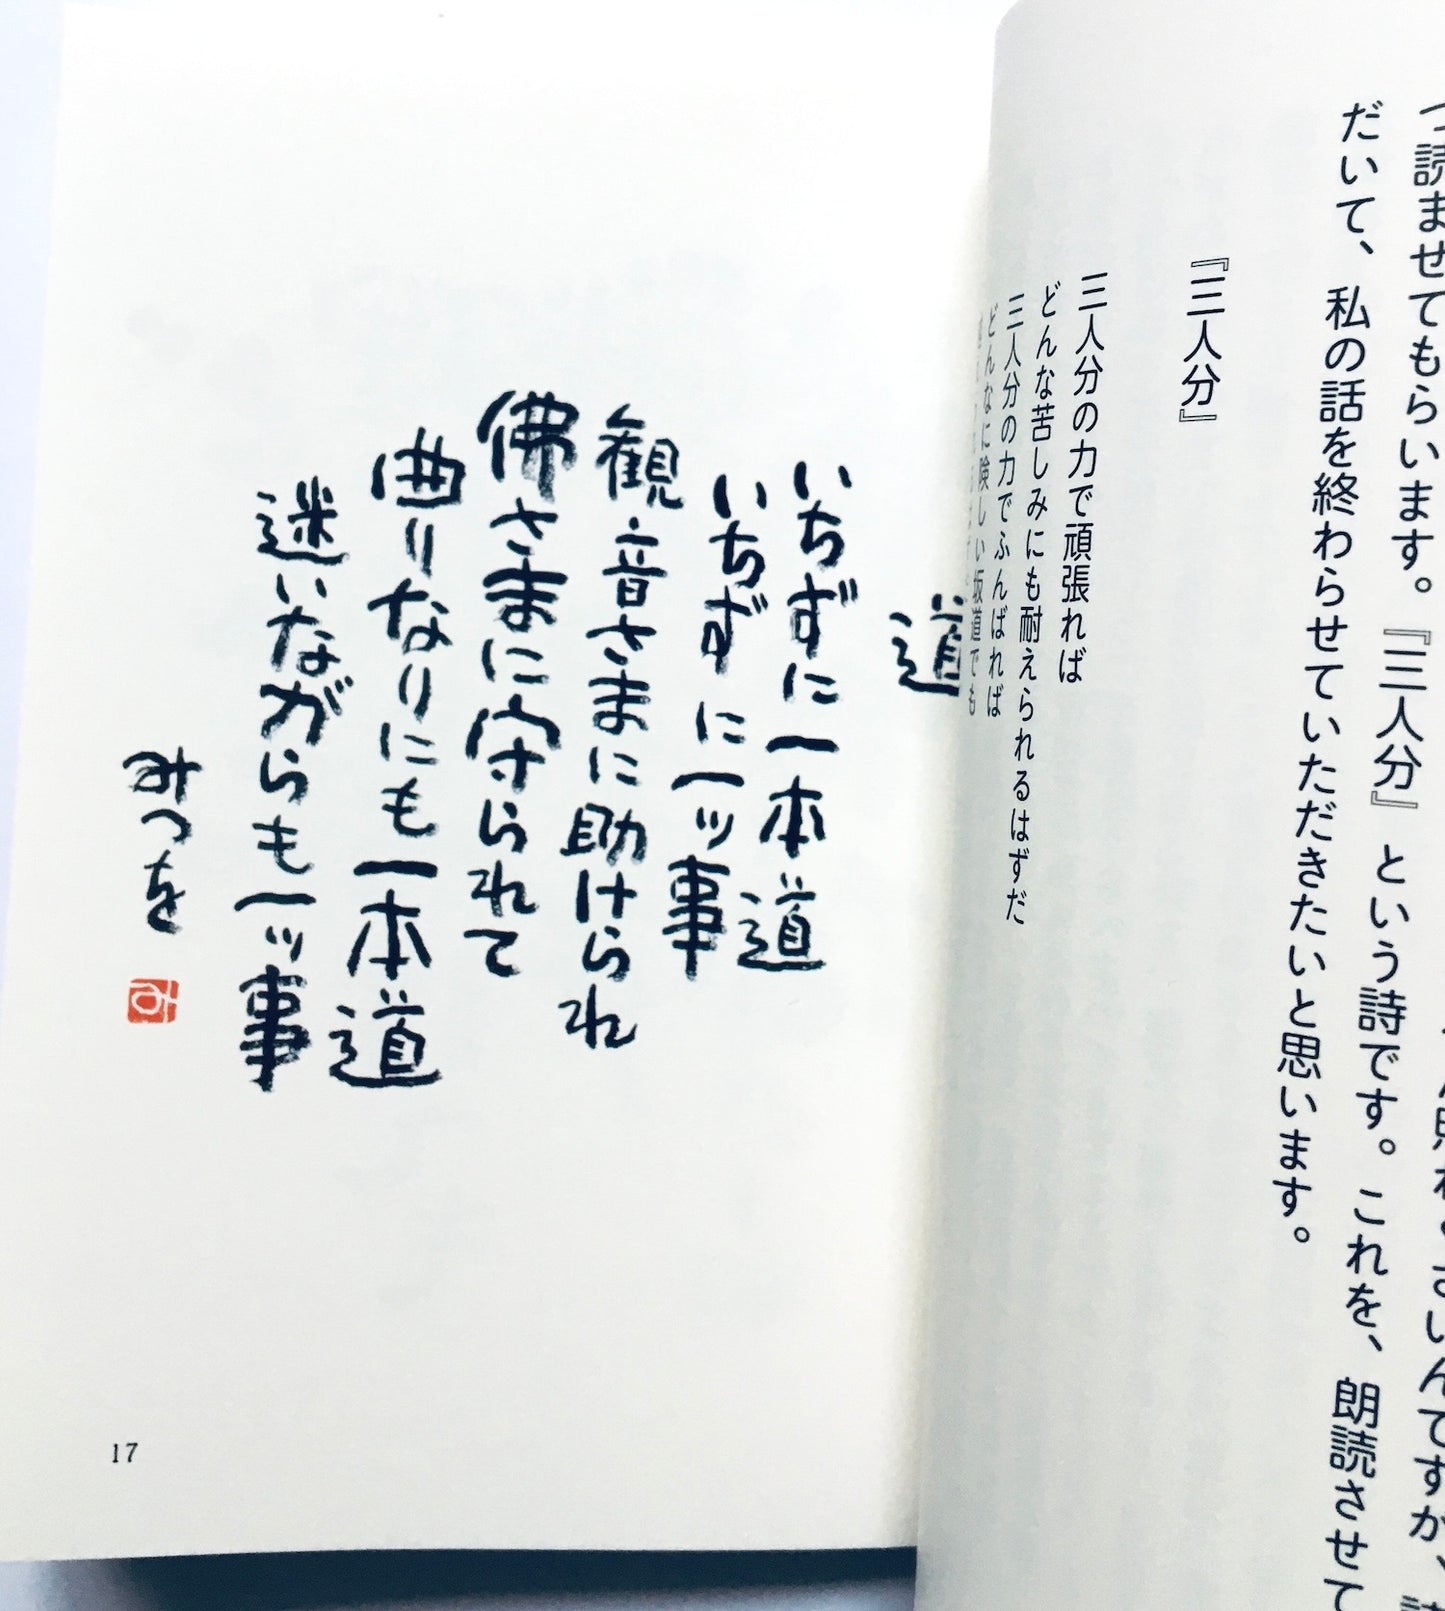 つ読ませてもらいます。『三人分』という詩です。これを、朗読させて
だいて、私の話を終わらせていただきたいと思います。
『三人分』
三人分の力で頑張れば
どんな苦しみにも耐えられるはずだ
三人分の力でふんばれば
どんなに険しい坂道でも
道
いちずに一本道
いちずに一ッ事
観音さまに助けられ
佛さまに守られて
曲りなりにも一本道
迷いながらも一ッ事
みつを
17